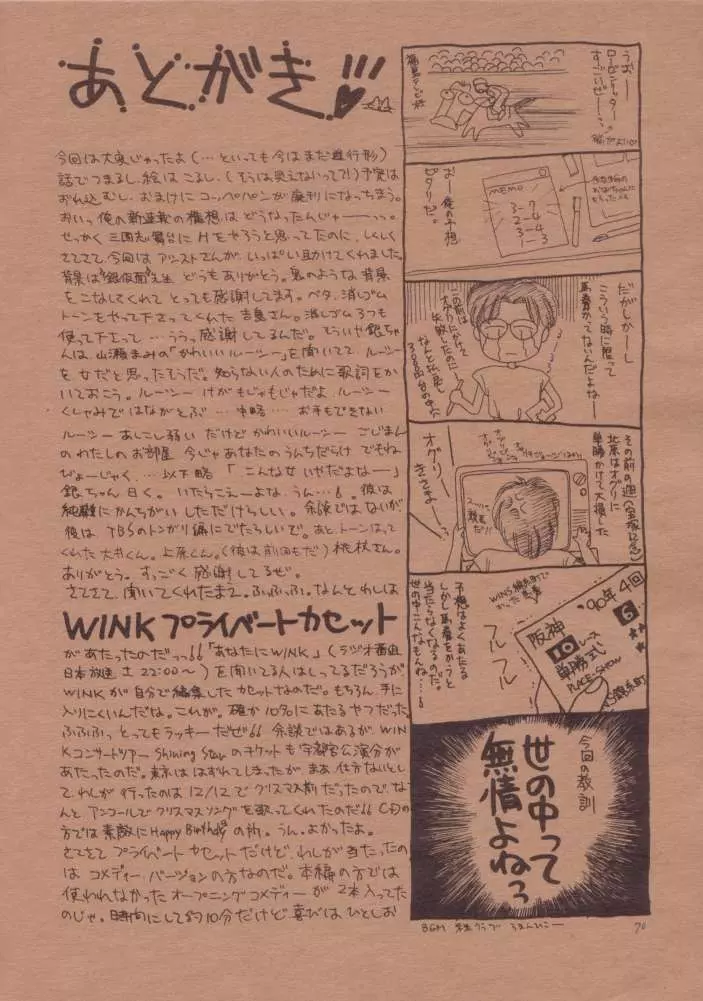 あとがき!!!
今回は大変じゃったよ(…といっても今はまだ進行形)
話でつまるし、絵はこるし、(そうは見えないって?!)予定は
おれ込むし、おまけにコッペパンが廃刊になっちまう。
おいっ俺の新連載の構想はどうなったんじゃーーっっ。
せっかく三国志舞台にHをやろうと思ってたのに、しくしく
さてさて、今回はアシストさんが、いっぱい助かけてくれました
背景は"銀仮面"先生 どうもありがとう。鬼のような背景
をこなしてくれて とっても感謝してます。ベタ、消しゴム
トーンをやって下さってくれた吉島さん。消しゴム3つも
使って下さって…ううっ感謝してるんだ。そういや銀ちゃ
んは、山瀬まみの「かわいいルーシー」を聞いてて ルーシー
を女だと思ったそうだ。知らない人のために歌詞をか
いておこう。ルーシー けがもじゃもじゃだよ、ルーシー
くしゃみではながとぶ …中略… お手もできない
ルーシー あしこし弱い だけど かわいいルーシー ごじまん
のわたしのお部屋 今じゃあなたのうんちだらけ でもね
びょーじゃく、…以下略 「こんな女いやだよなー」
銀ちゃん曰く。いたらこえーよな、うん…。彼は
純粋にかんちがいしただけらしい。余談ではないが
後は TBSのトンガリ編にでたらしいで。あと、トーンはって
くれた 大井くん。上原くん。(彼は前回もだ)桃枝さん。
ありがとう。すっごく感謝してるぜ。
さてさて、聞いてくれたまえ。ふふふっ。なんとわしは
WINK プライベートカセット
があたったのだっっ 「あなたにWINK」(ラジオ番組
日本放送 土 22:00〜)を聞いてる人はしってるだろうが
WINKが自分で編集したカセットなのだ。もちろん、手に
入りにくいんだな。これが。確か10名にあたるやつだった
ふふふふっ とってもラッキーだぜ 余談ではあるが WIN
Kコンサートツアー Shining Star のチケットも宇都宮公演分が
あたったのだ。東京ははずれてしまったが、まあ仕方ないとし
て、わしが行ったのは 12/12で クリスマス前だったので、な
んと アンコールで クリスマスソングを歌ってくれたのだ
方では素敵に Happy Birthday の所。うん、よかったよ。
さてさて プライベートカセットだけど、わしが当たったの
は コメディーバージョンの方なのだ。本編の方では
使われなかった オープニングコメディーが 2本入ってた
のじゃ。時間にして約10分だけど 喜びはひとしお
うおーー
すごいぜーー
おー俺の予想
ピタリだ。
MEMO
3-7
2-4
4-4
1-3
だがしかーし
こういう時に限って
馬券かってないんだよねー
その前の週(宝塚記念)
北条はオグリに
単勝かけて大損した
オグリー
きさまーー
予想はよくあたる
しかし馬券をかうと
当たらなくなるのだ。
世の中こんなもんね…。
フルフル
'90年4回
阪神
10レース
6
単勝式
PLACE-SHOW
今回の教訓
世の中って
無情よねっ
BGM
70